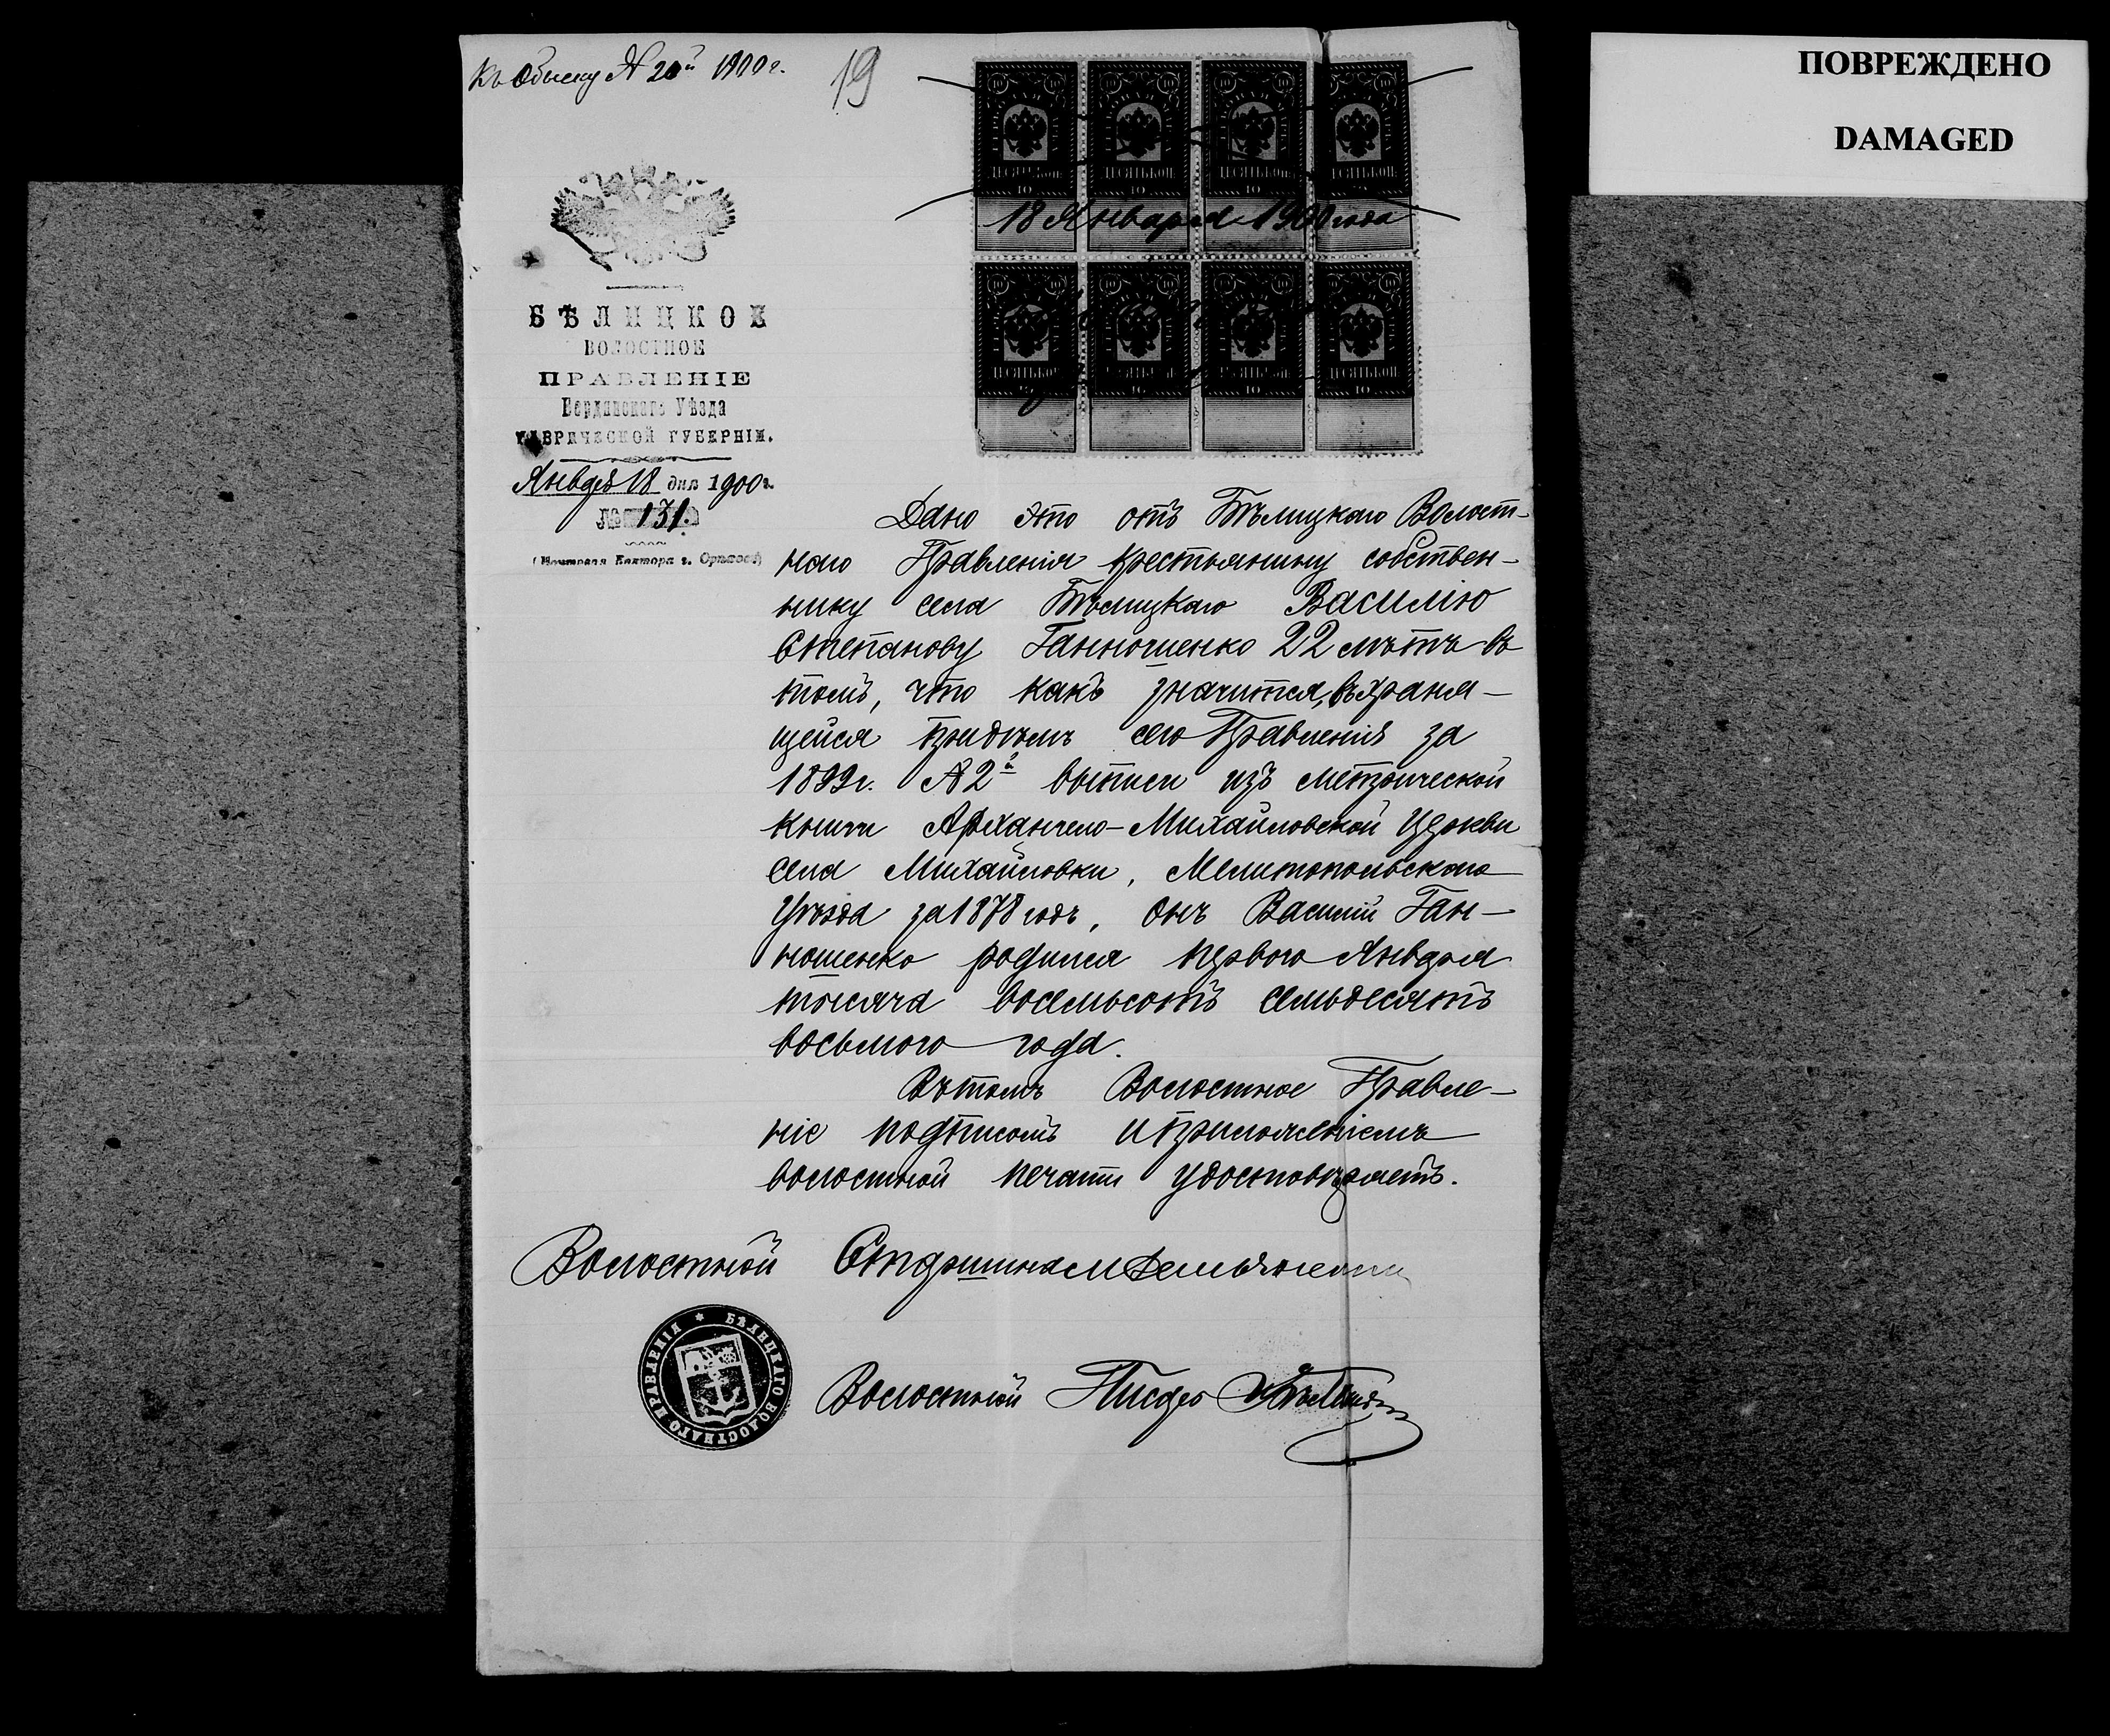 Къ Обыску № 20й 1900 г.
19
ПОВРЕЖДЕНО
DAMAGED
18 Января 1900 года
БѢЛИЦКОЕ
ВОЛОСТНОЕ
ПРАВЛЕНІЕ
Бердянскаго Уѣзда
ТАВРИЧЕСКОЙ ГУБЕРНІИ.
Январ 18 дня 1900 г.
№ 131.
(Почтовая Контора г. Орѣховъ)
Дано это отъ Бѣлицкаго Волост-
наго Правленія крестьянину собствен-
нику села Бѣлицкаго Василію
Степанову Ганношенко 22 лѣтъ въ
томъ, что какъ значится, въ храня-
щейся придѣлъ сего Правленія за
1899 г. № 2й выписи изъ метрической
книги Архангело-Михайловской Церкви
села Михайловки, Мелитопольскаго
Уѣзда за 1878 годъ, онъ Василій Ган-
ношенко родился перваго Января
тысяча восемьсотъ семьдесятъ
восьмого года.
Въ томъ Волостное Правле-
ніе подписомъ и приложеніемъ
волостной печати удостовѣряетъ.
Волостной Старшина
БѢЛИЦКАГО ВОЛОСТНАГО ПРАВЛЕНІЯ
Волостной Писарь